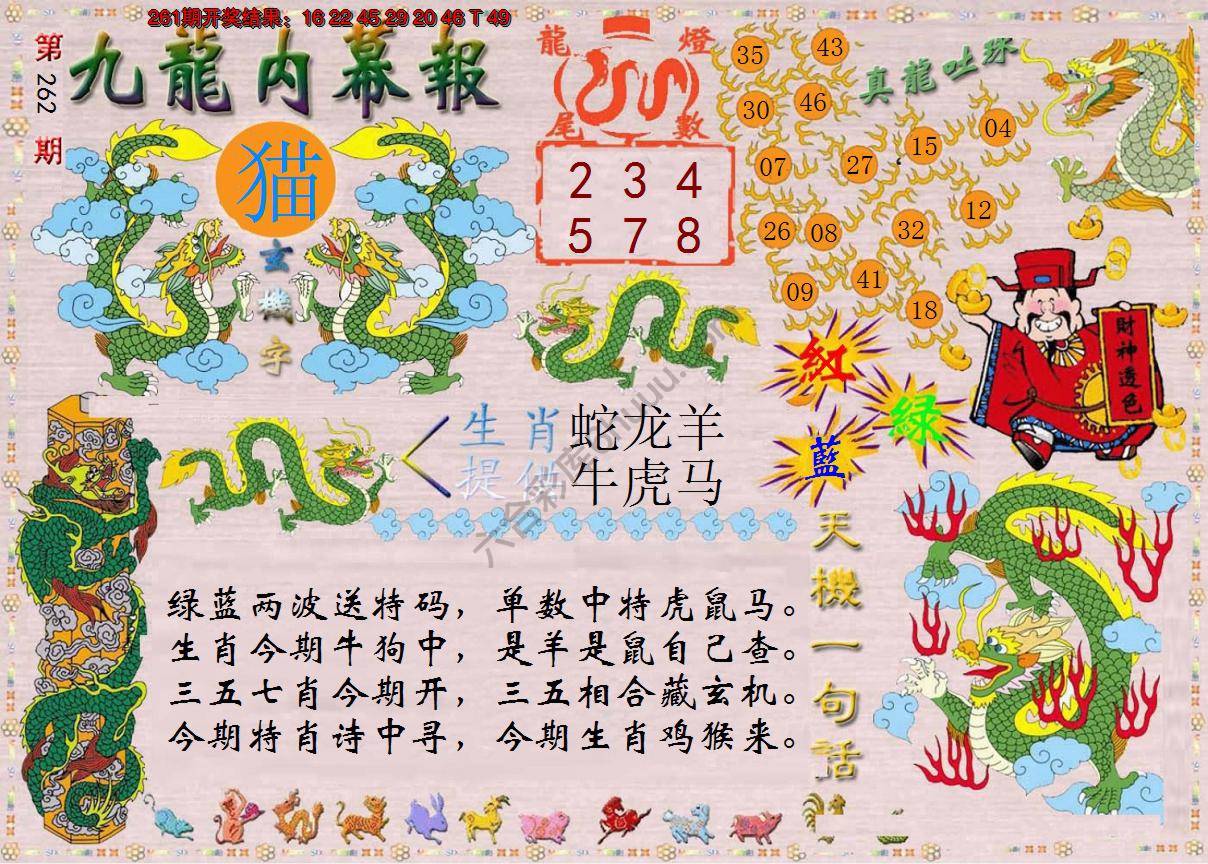 261期开奖结果：16 22 45 29 20 46 T 49
第262期
九龍内幕報
猫
玄機字
龍燈
尾數
2 3 4
5 7 8
真龍吐珠
35
43
30
46
04
15
07
27
12
26
08
32
09
41
18
財神透色
紅
绿
藍
生肖
提供
蛇龙羊
牛虎马
天機一句話
绿蓝两波送特码，单数中特虎鼠马。
生肖今期牛狗中，是羊是鼠自己查。
三五七肖今期开，三五相合藏玄机。
今期特肖诗中寻，今期生肖鸡猴来。